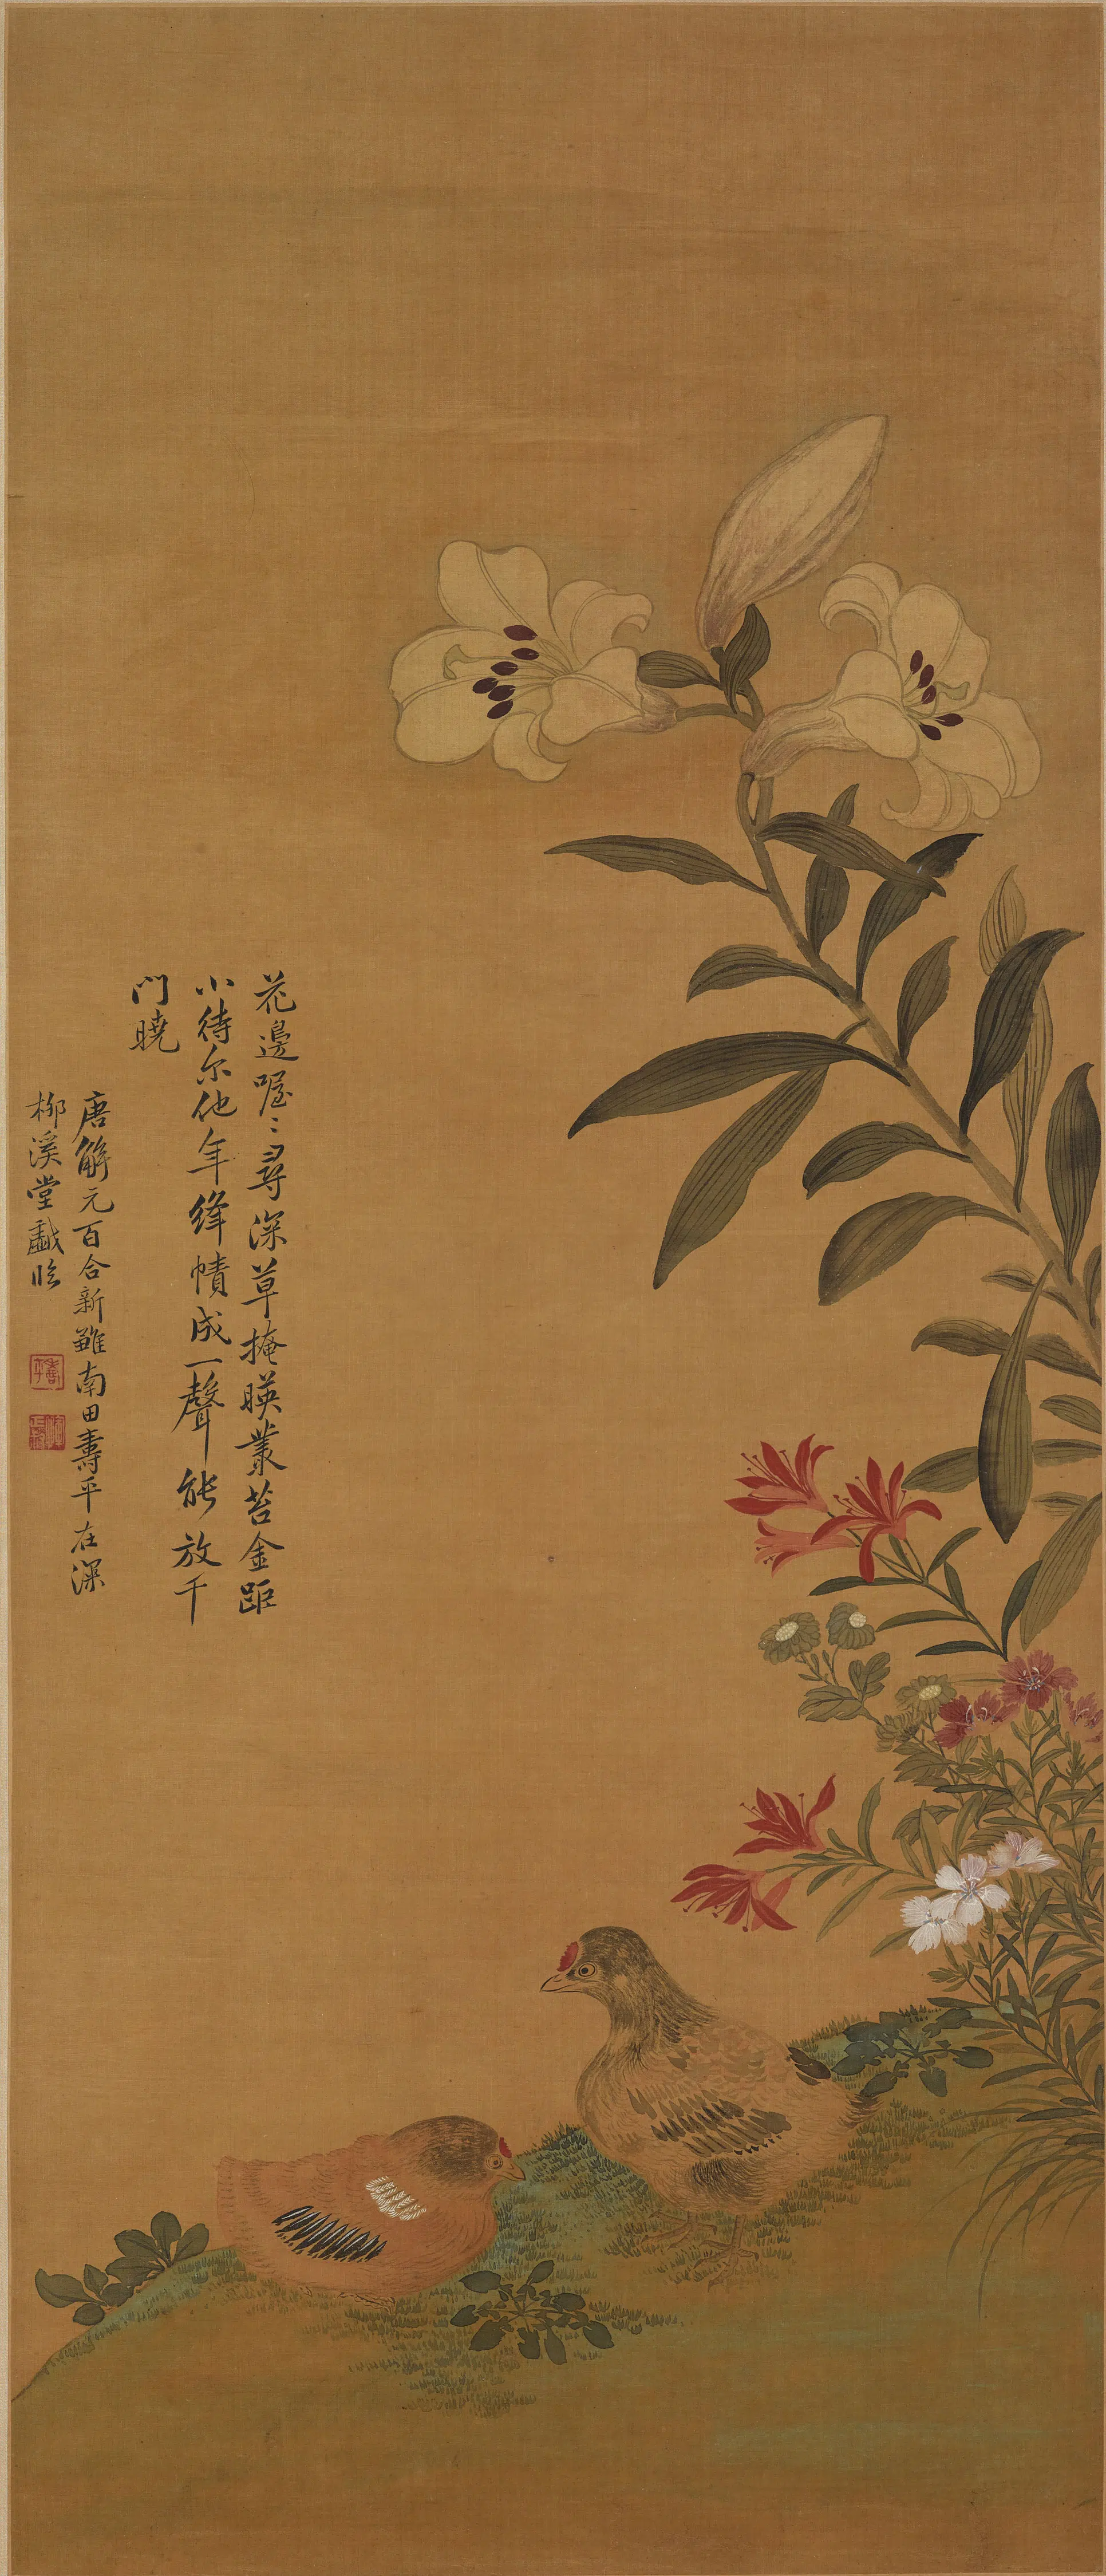 花邊喔〻尋深草掩暎叢苔金距
小待尔他年絳幘成一聲能放千
門曉
唐解元百合新雖南田壽平在深
柳溪堂戲臨
壽平